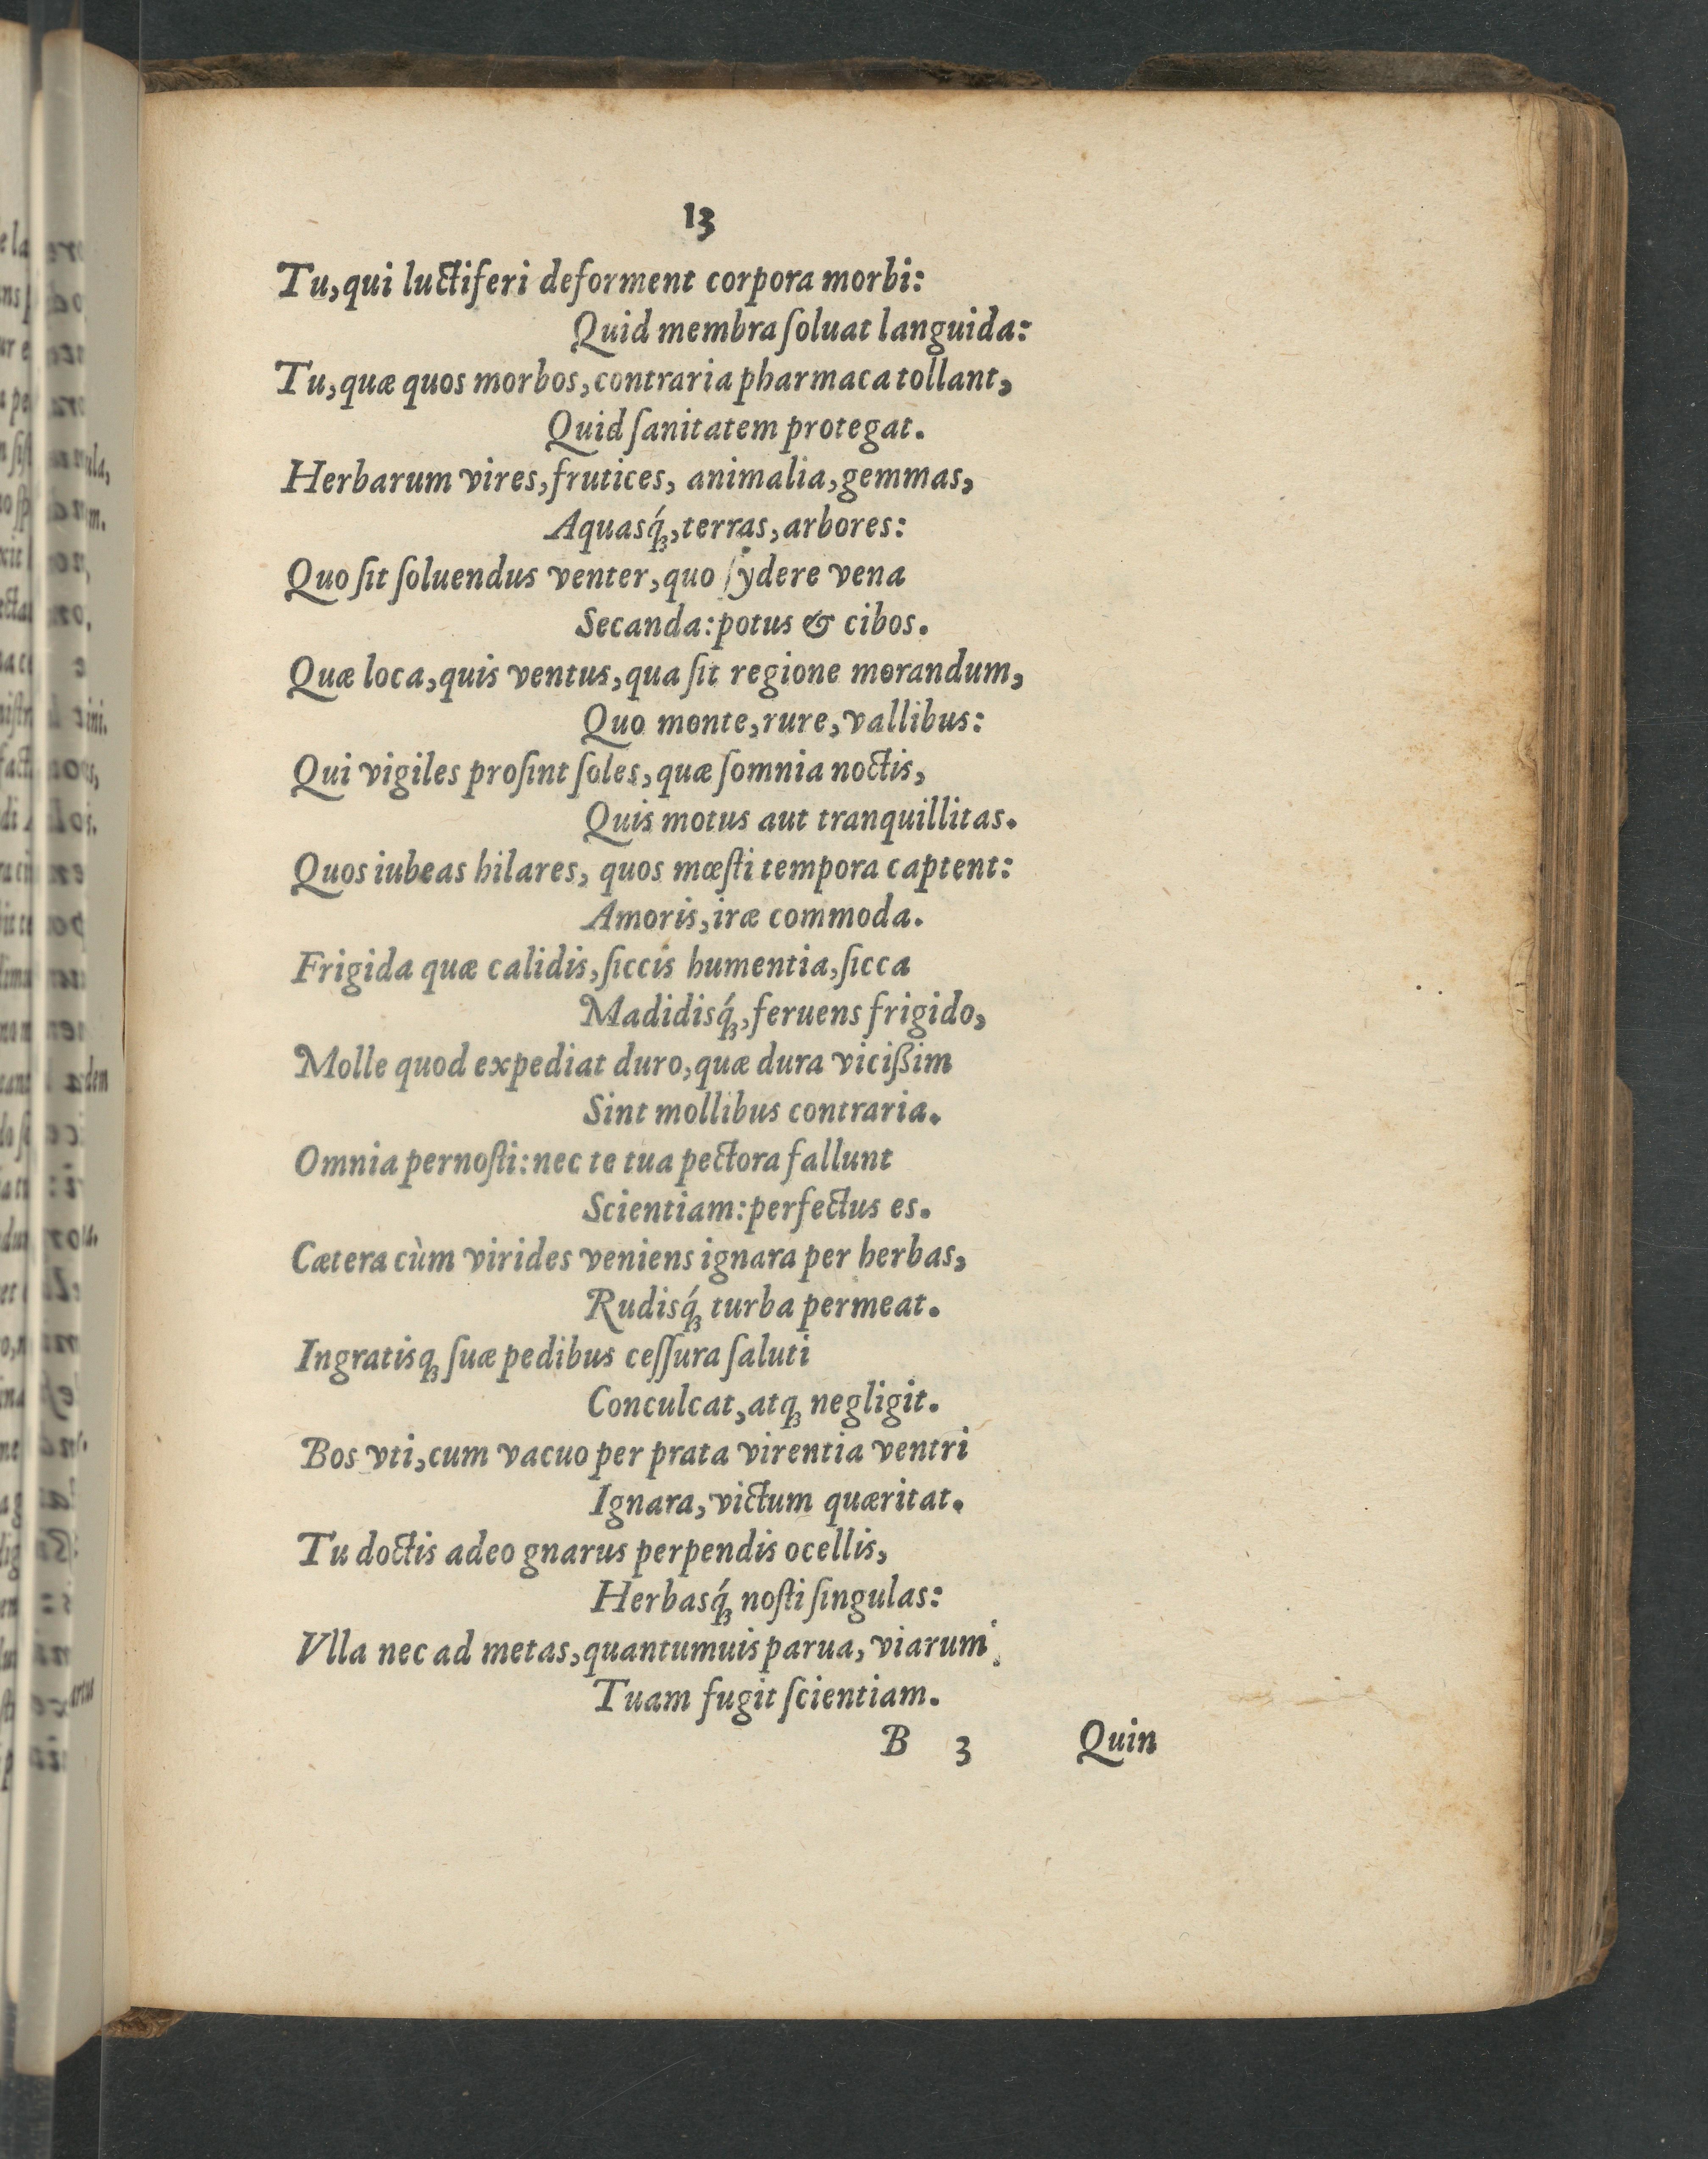 13
Tu, qui luctiferi deforment corpora morbi:
Quid membra ſoluat languida:
Tu, quæ quos morbos, contraria pharmaca tollant,
Quid ſanitatem protegat.
Herbarum vires, frutices, animalia, gemmas,
Aquasq́ꝫ, terras, arbores:
Quo ſit ſoluendus venter, quo ſydere vena
Secanda: potus & cibos.
Quæ loca, quis ventus, qua ſit regione morandum,
Quo monte, rure, vallibus:
Qui vigiles proſint ſoles, quæ ſomnia noctis,
Quis motus aut tranquillitas.
Quos iubeas hilares, quos mœſti tempora captent:
Amoris, iræ commoda.
Frigida quæ calidis, ſiccis humentia, ſicca
Madidisq́ꝫ, feruens frigido,
Molle quod expediat duro, quæ dura vicißim
Sint mollibus contraria.
Omnia pernoſti: nec te tua pectora fallunt
Scientiam: perfectus es.
Cætera cùm virides veniens ignara per herbas,
Rudisq́ꝫ turba permeat.
Ingratisqꝫ ſuæ pedibus ceſſura ſaluti
Conculcat, atqꝫ negligit.
Bos vti, cum vacuo per prata virentia ventri
Ignara, victum quæritat.
Tu doctis adeo gnarus perpendis ocellis,
Herbasq́ꝫ noſti ſingulas:
Vlla nec ad metas, quantumuis parua, viarum
Tuam fugit ſcientiam.
B 3 Quin